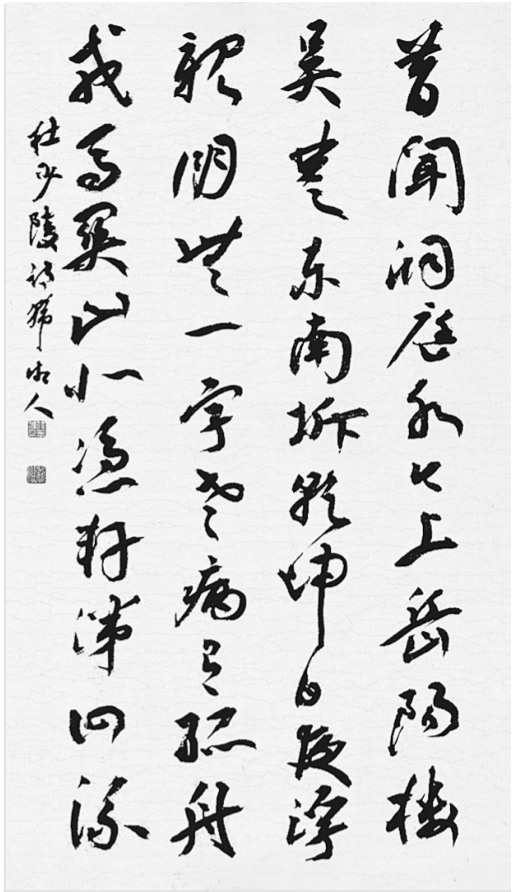 昔聞洞庭水今上岳陽樓
吳楚東南坼乾坤日夜浮
親朋無一字老病有孤舟
戎馬關山北憑軒涕泗流
杜少陵詩 人